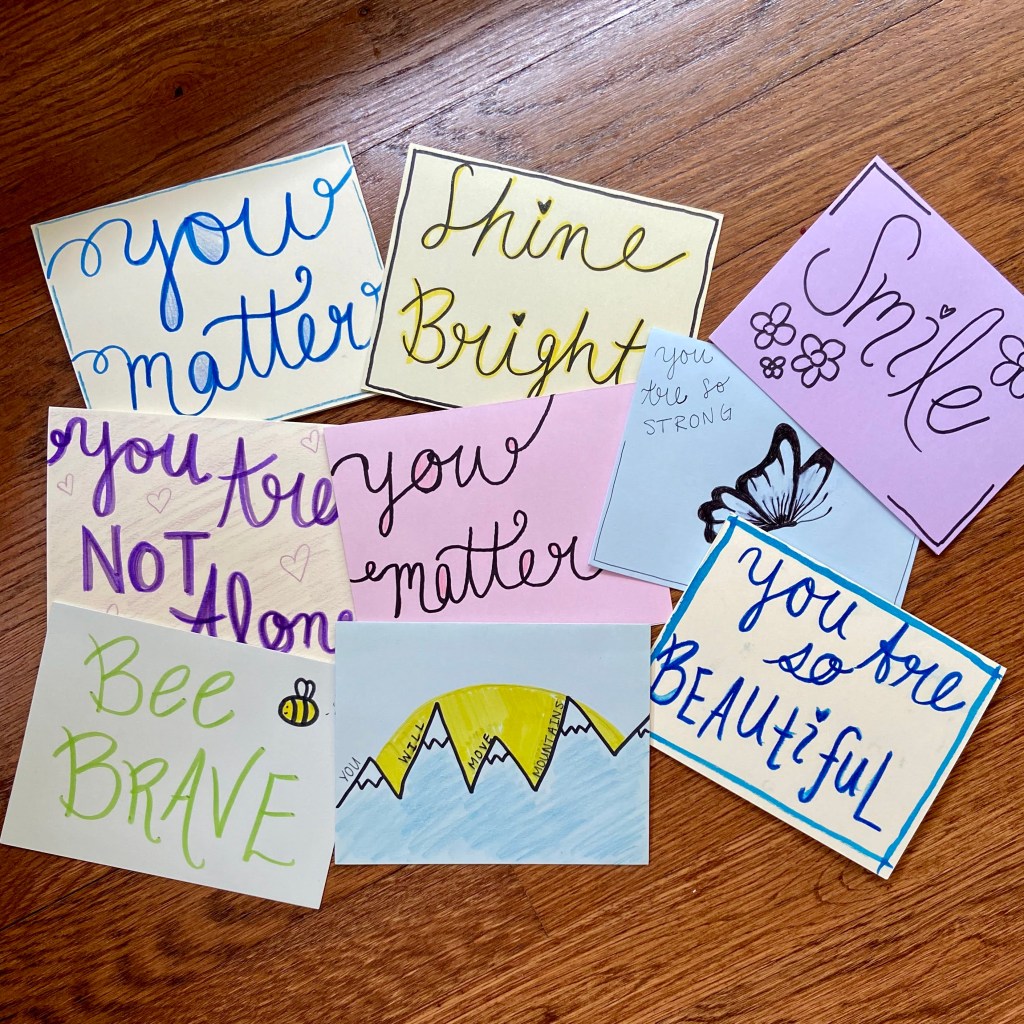 you
matter
Shine
Bright
Smile
you
Are so
STRONG
you Are
NOT
Alon
you
matter
you Are
so
BEAUtiful
Bee
BRAVE
YOU WILL MOVE MOUNTAINS